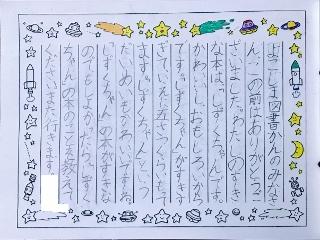 よこしま図書かんのみなさ
ん、この前はありがとうご
ざいました。わたしのすき
な本は、「しずくちゃん」です。
かわいいし、おもしろいから
です。しずくちゃんがすきす
ぎていえにさつくらいもってい
ます。しずくちゃんという
だいめいもかわいいですね。
しずくちゃんの本がすきな
のでもしよかったら、しずく
ちゃんの本のことを教えて
ください。また行きます。